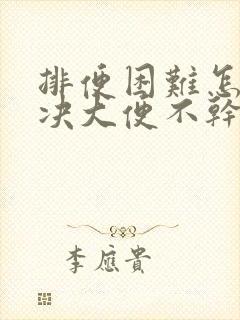 排便困難怎
决大便不幹
李应貴